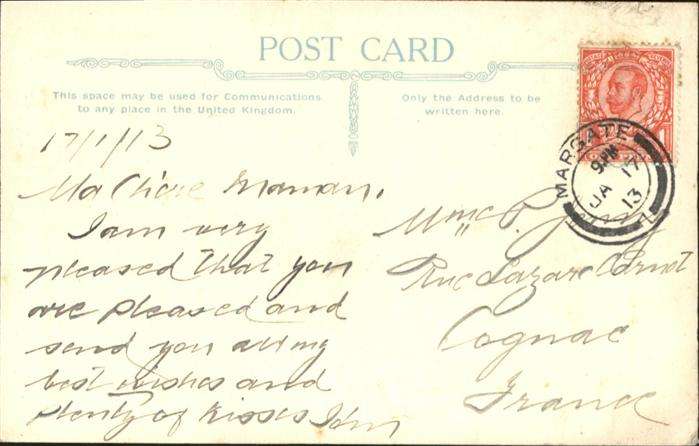 POST CARD
This space may be used for Communications
to any place in the United Kingdom.
Only the Address to be
written here.
MARGATE
9 PM
JA 17
13
17/1/13
Ma Chère Maman,
I am very
pleased that you
are pleased and
send you all my
best wishes and
plenty of kisses
Mme P.
Rue Lazare Carnot
Cognac
France